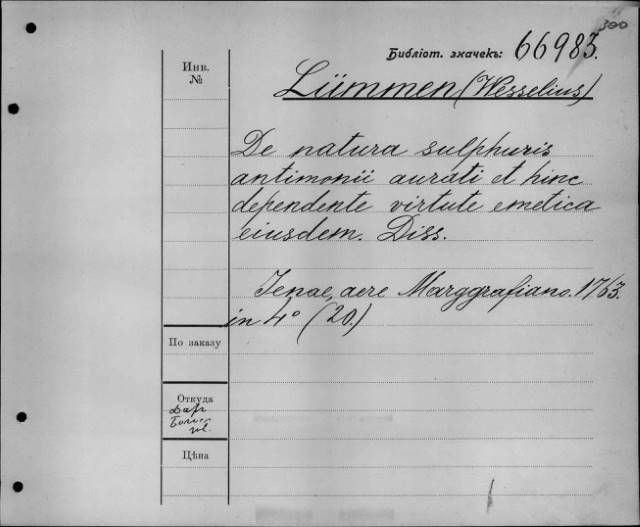 300
Библіот. значекъ: 66983.
Инв.
№
Lümmen (Wesselius)
De natura sulphuris
antimonii aurati et hinc
dependente virtute emetica
eiusdem. Diss.
Ienae, aere Marggrafiano. 1763.
in 4° (20.)
По заказу
Откуда
Дар
Цѣна